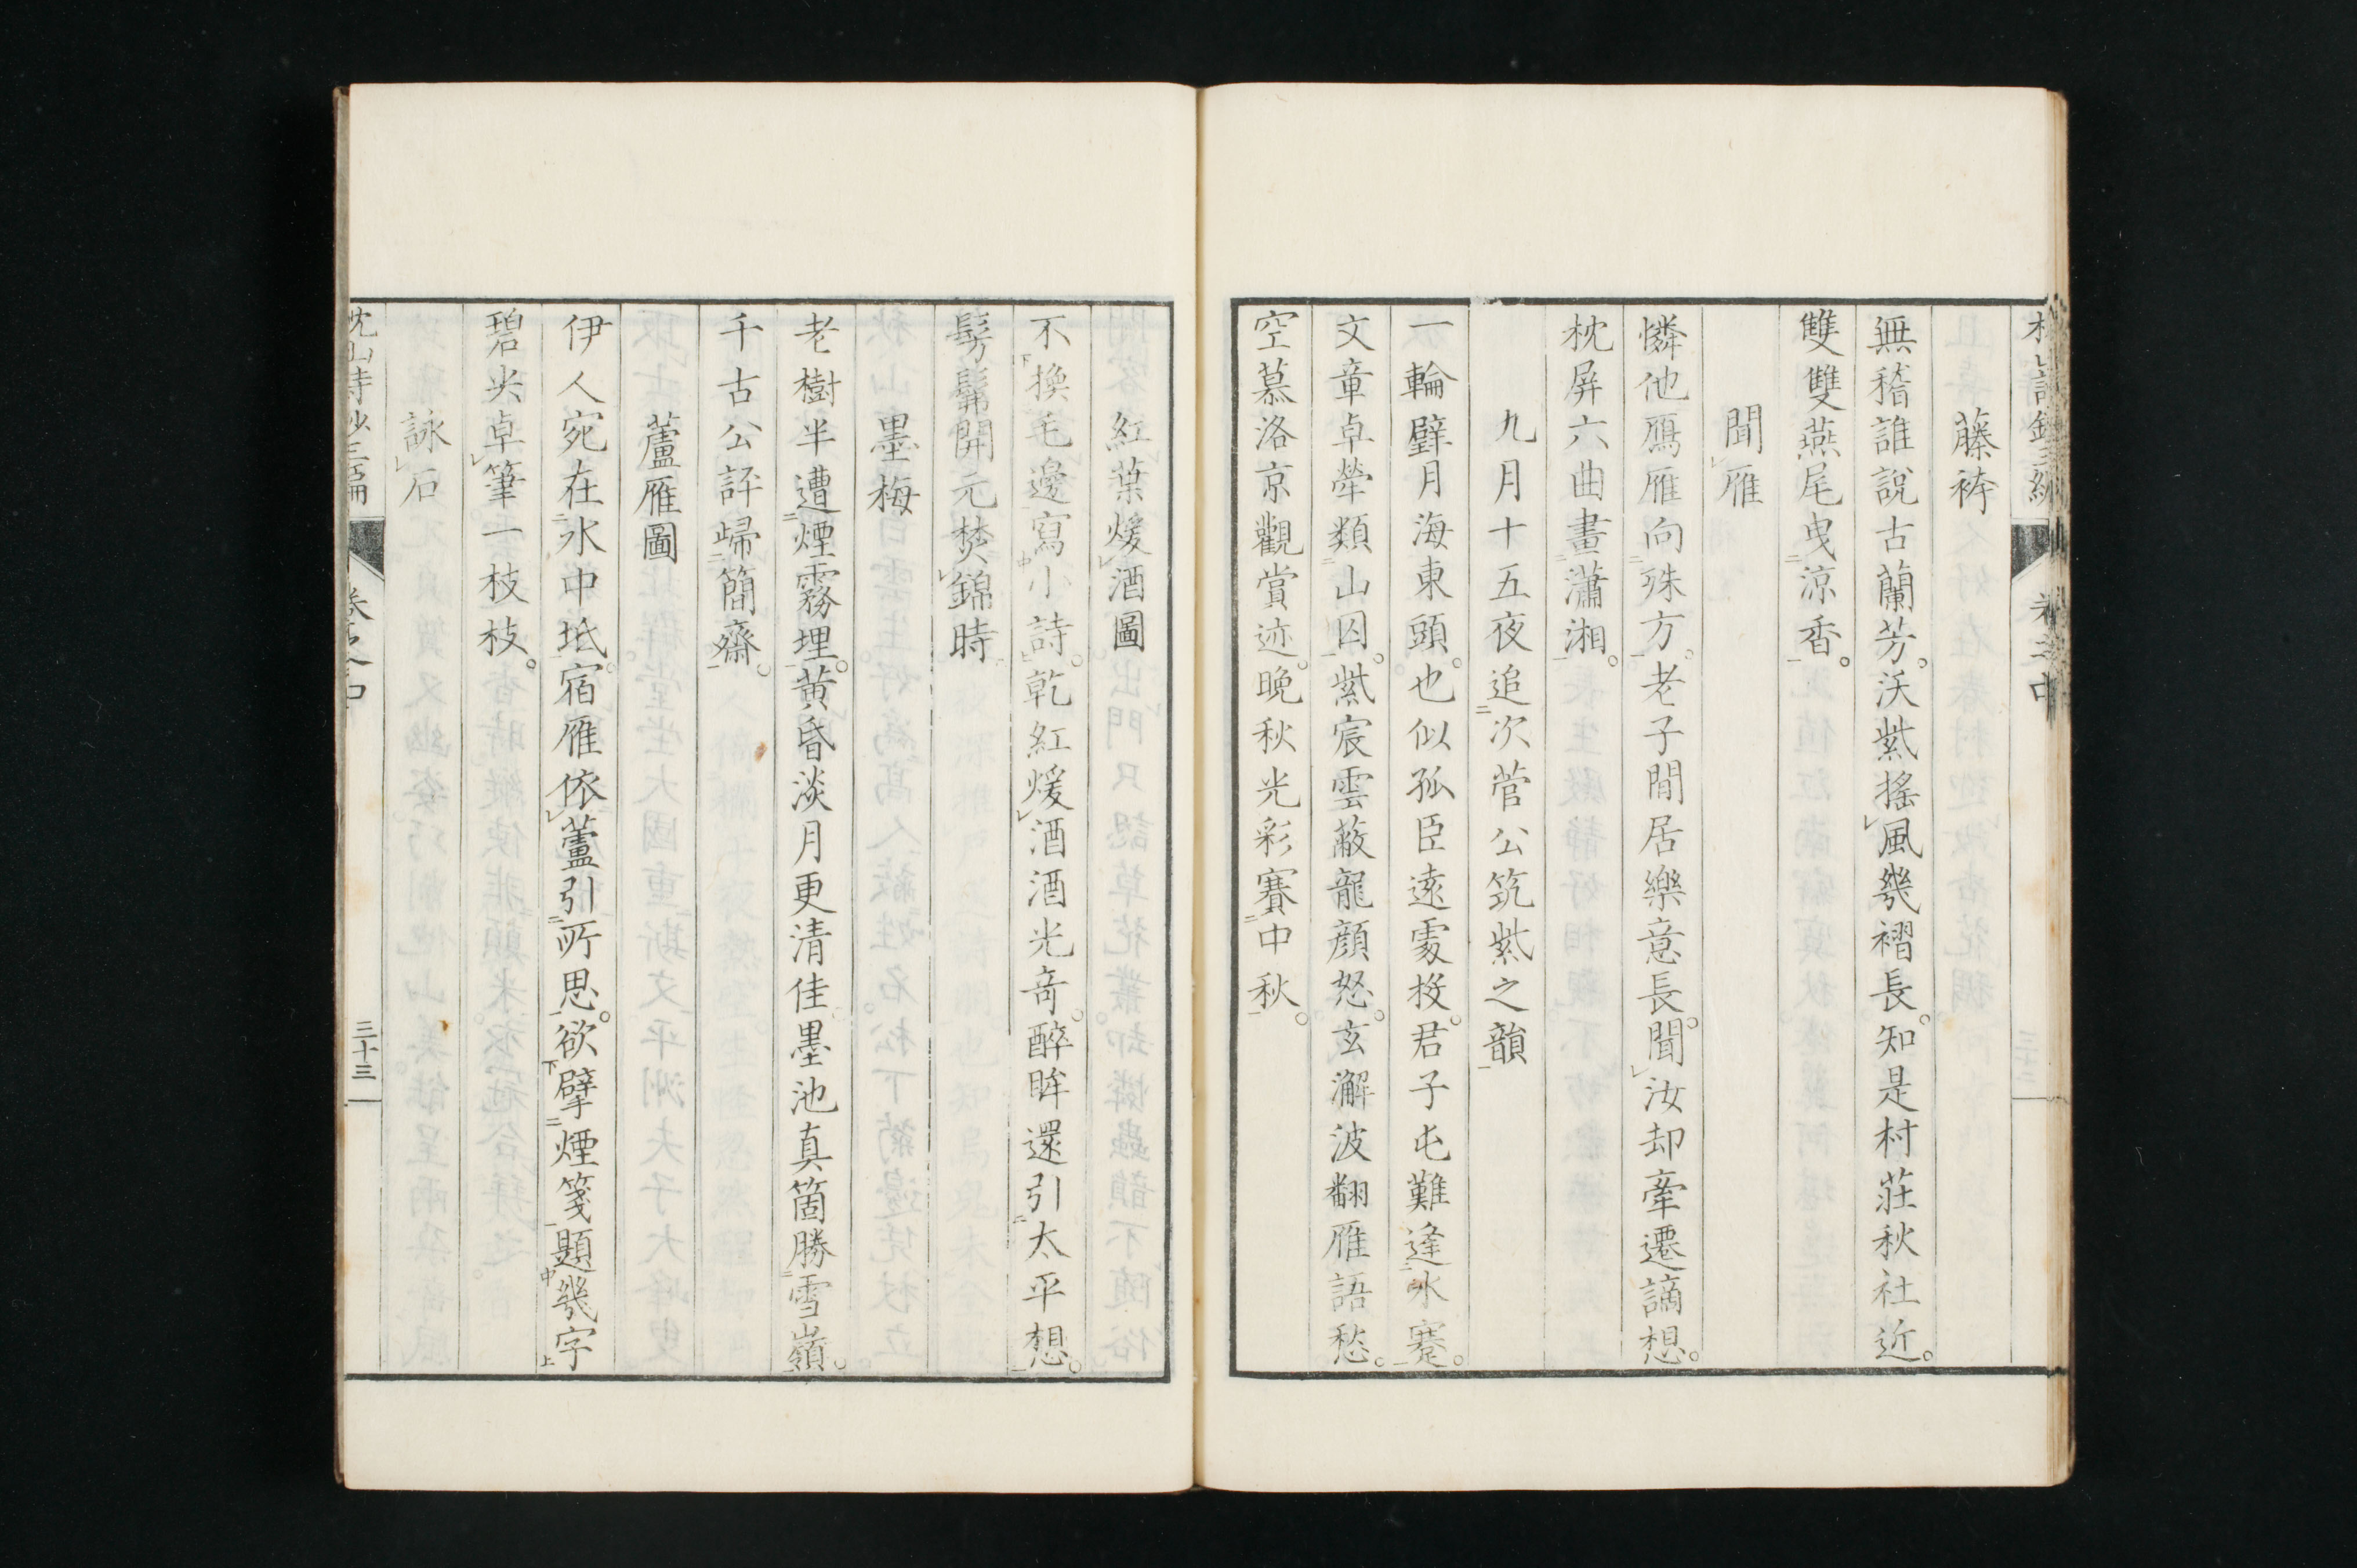 藤袴
無稽誰說古蘭芳。沃紫搖風幾褶長。知是村莊秋社近。
雙雙燕尾曳涼香。
聞雁
憐他鴈雁向殊方。老子閒居樂意長。聞汝却牽遷謫想。
枕屏六曲畫瀟湘。
九月十五夜追次菅公筑紫之韻
一輪璧月海東頭。也似孤臣遠處投。君子屯難逢氷蹇。
文章卓犖類山囚。紫宸雲蔽龍顏怒。玄澥波翻雁語愁。
空慕洛京觀賞迹。晚秋光彩賽中秋。
紅葉煖酒圖
不換毛邊寫小詩。乾紅煖酒酒光奇。醉眸還引太平想。
髣髴開元焚錦時
墨梅
老樹半遭煙霧埋。黃昏淡月更清佳。墨池真箇勝雪嶺。
千古公評歸簡齋。
蘆雁圖
伊人宛在水中坻。宿雁依蘆引所思。欲擘煙箋題幾字
碧尖卓筆一枝枝。
詠石
枕山詩鈔三編
卷之中
三十三